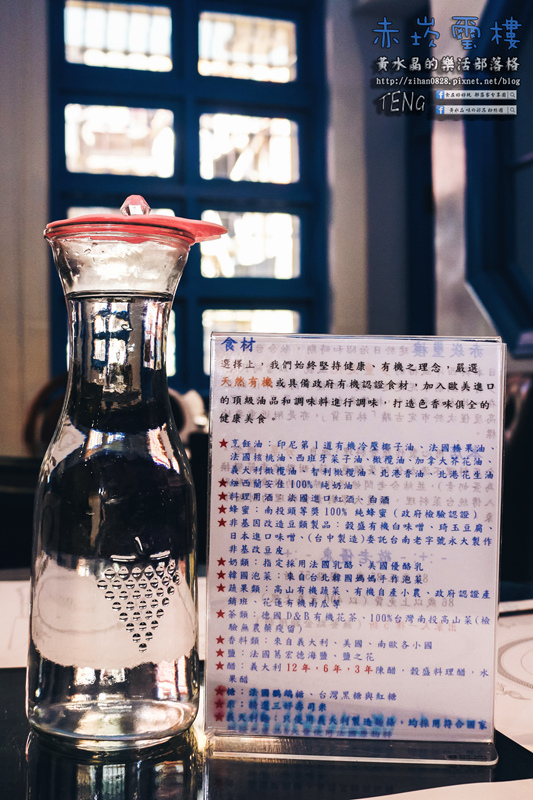 赤崁璽樓
黃水晶的樂活部落格
http://zihan0828.pixnet.net/blog
TENG
食材
選擇上，我們始終堅持健康、有機之理念，嚴選
天然有機或具備政府有機認證食材，加入歐美進口
的頂級油品和調味料進行調味，打造色香味俱全的
健康美食。
★烹飪油：印尼第1道有機冷壓椰子油、法國榛果油、
法國核桃油、西班牙菜子油、橄欖油、加拿大芥花油、
義大利橄欖油、智利橄欖油、北港香油、北港花生油
★紐西蘭安佳100%純奶油
★料理用酒：法國進口紅酒、白酒
★蜂蜜：南投頭等獎100% 純蜂蜜(政府檢驗認證)
★非基因改造豆類製品：穀盛有機白味噌、琦玉豆腐、
日本進口味噌、(台中製造)委託台南老字號永大製作
非基改豆皮
★奶類：指定採用法國乳酪、美國優酪乳
★韓國泡菜：來自台北韓國媽媽手作泡菜
★蔬果類：高山有機蔬菜、有機自產小農、政府認證產
銷班、花蓮有機南瓜等
★茶類：德國D&B有機花茶、100%台灣南投高山茶(檢
驗無農藥殘留)
★香料類：來自義大利、美國、南歐各小國
★鹽：法國葛宏德海鹽、鹽之花
★醋：義大利12年，6年，3年陳醋、穀盛料理醋、水
果醋
★糖：法國鸚鵡糖，台灣黑糖與紅糖
★米：
★義大利麵：